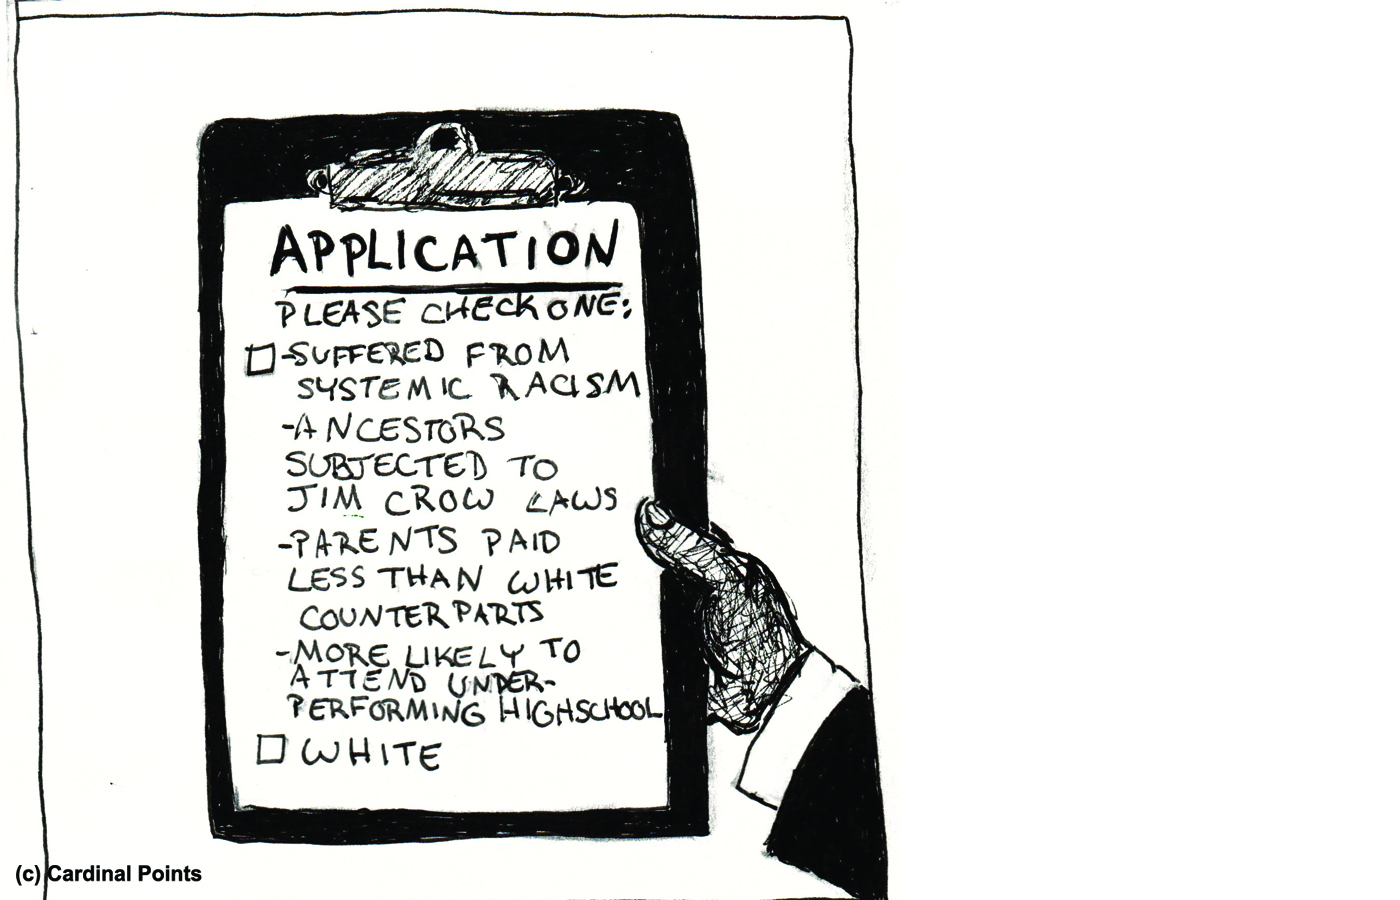 APPLICATION
PLEASE CHECK ONE:
-SUFFERED FROM
SYSTEMIC RACISM
-ANCESTORS
SUBJECTED TO
JIM CROW LAWS
-PARENTS PAID
LESS THAN WHITE
COUNTERPARTS
-MORE LIKELY TO
ATTEND UNDER-
PERFORMING HIGHSCHOOL
WHITE
(c) Cardinal Points